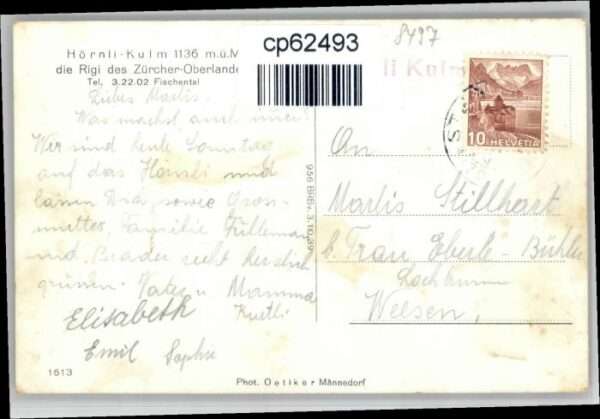 Hörnli-Kulm 1136 m.ü.M
die Rigi des Zürcher-Oberlande
Tel. 3.22.02 Fischental
cp62493
8497
li Kulm
10 HELVETIA
Liebes Marlis.
Was machst auch immer?
Wir sind heute Sonntag
auf das Hörnli und
lassen Dra sowie Gross-
mutter, Familie
und Bruder recht herzlich
grüssen. Vater u Mamma
Elisabeth Ruedi
Emil Sophie
956 BRB. 3.10.39
An
Marlis Stillhart
b. Frau Eberle-Bühler
Weesen,
1613
Phot. Oetiker Männedorf